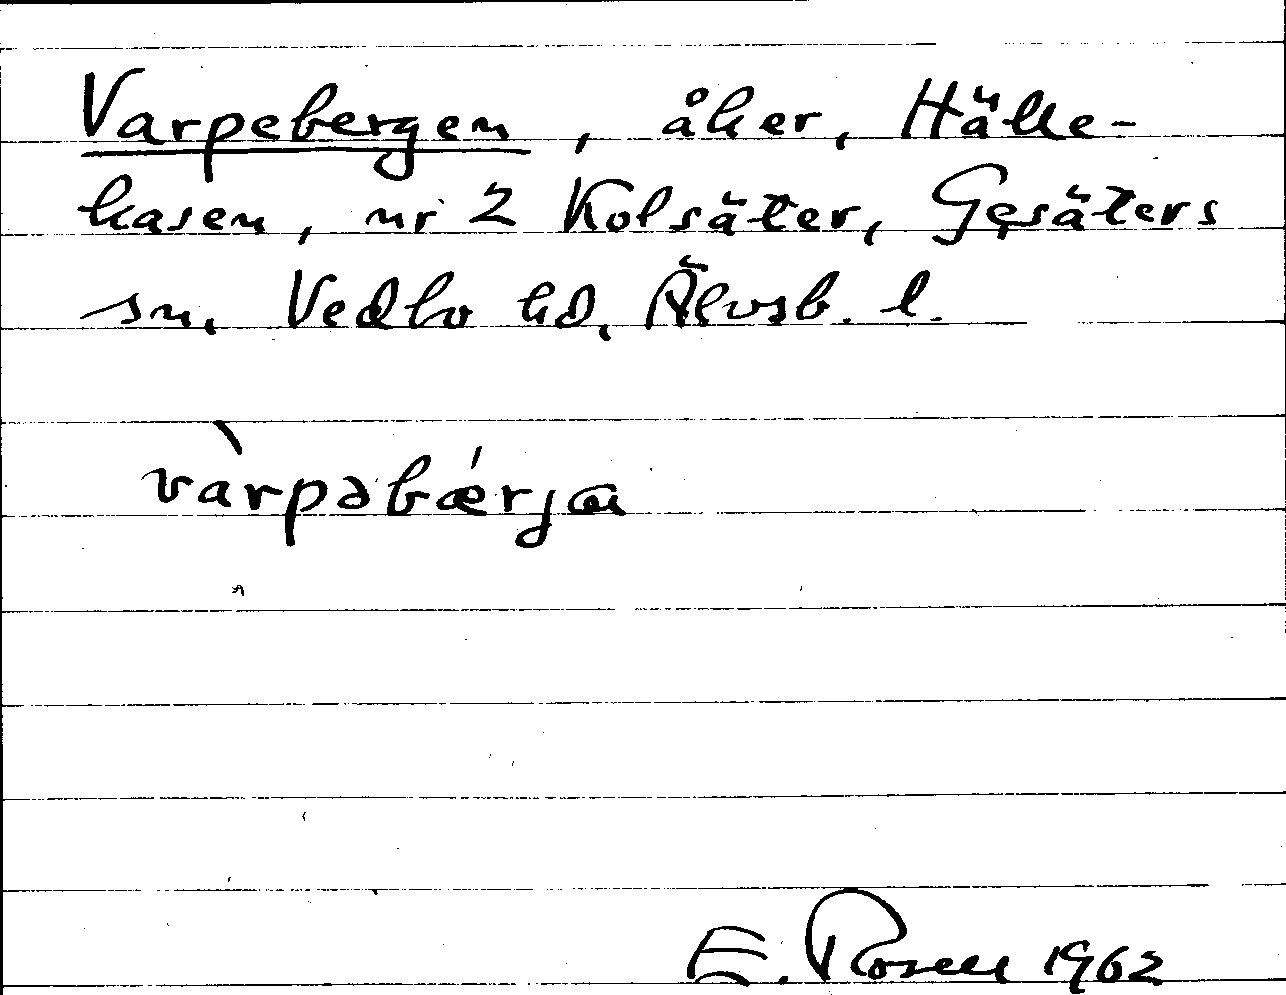 Varpebergen, åker, Hälle-
kasen, nr 2 Kolsäter, Gesäters
sn. Vedbo hd, Älvsb. l.
vàrpəbǽrja
E. Rosell 1962